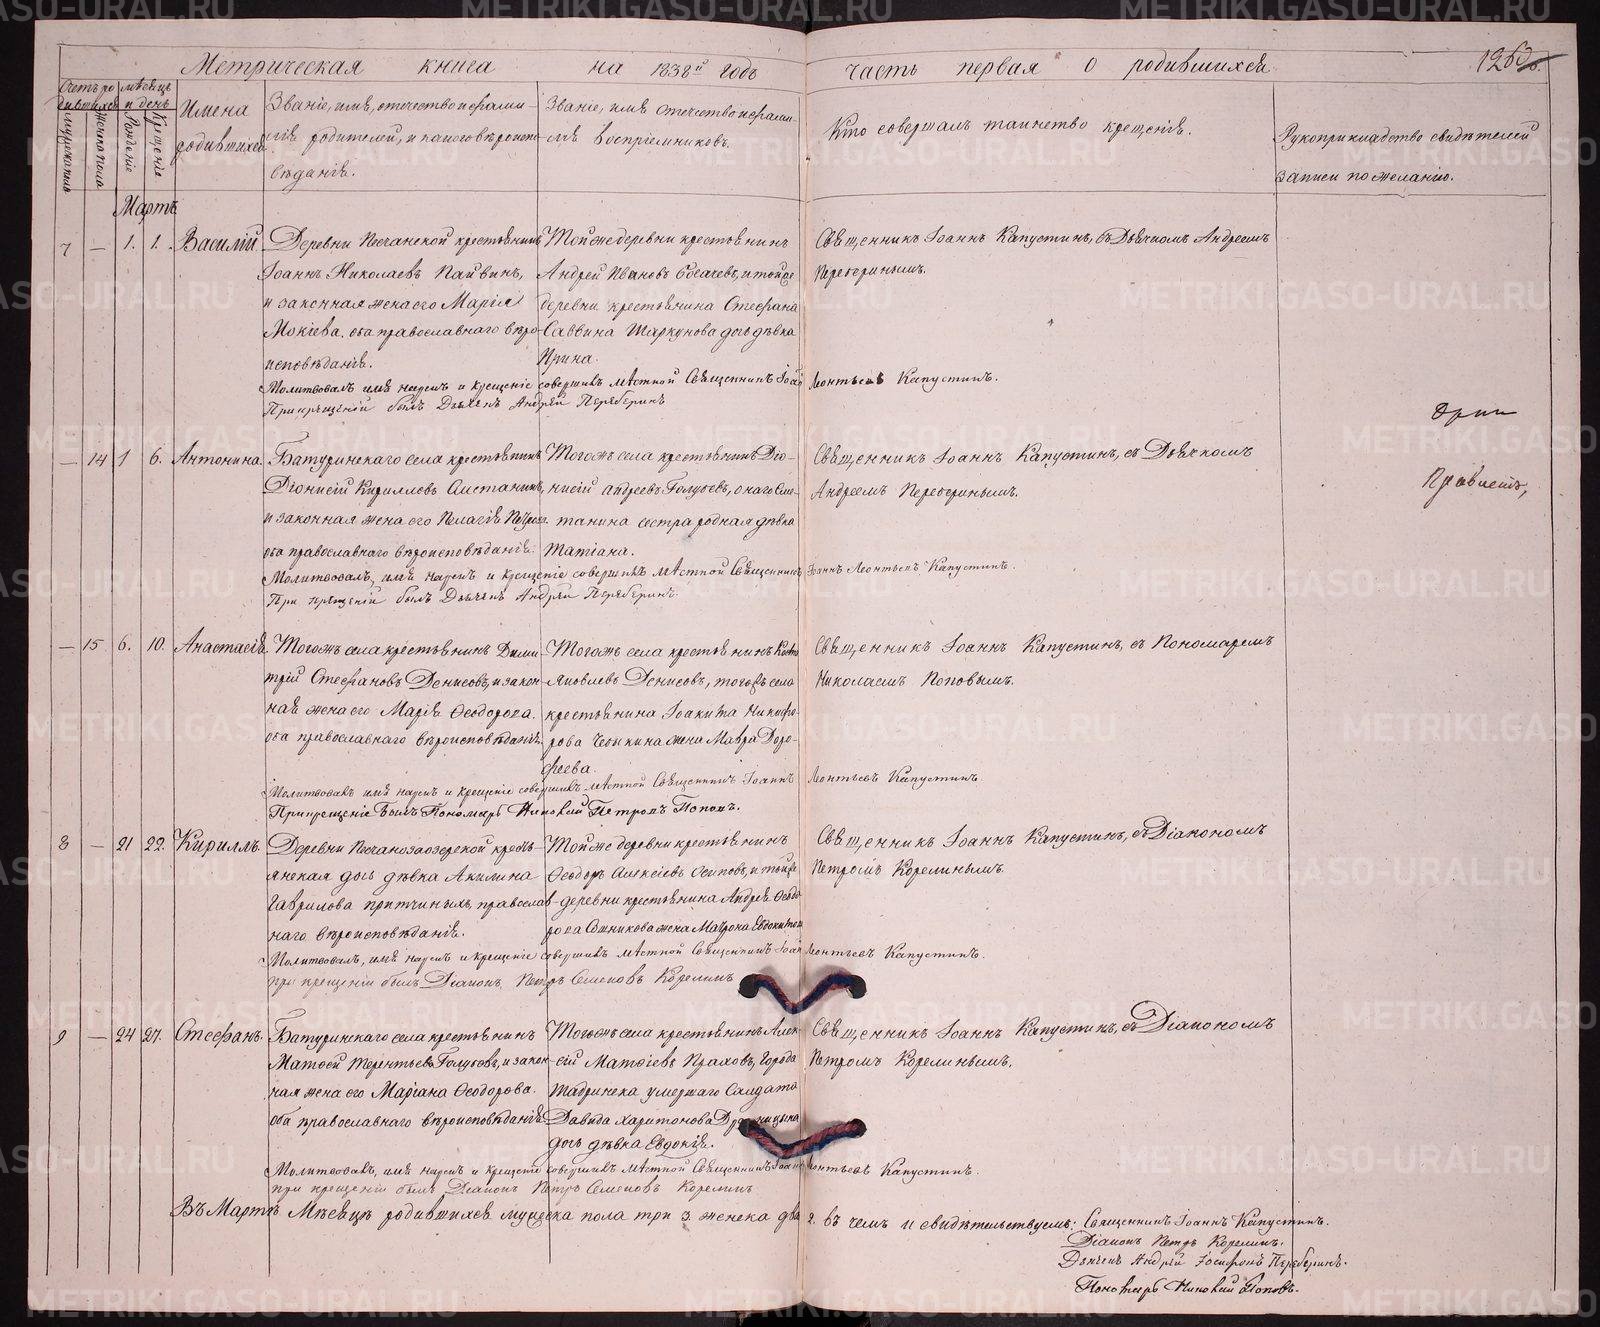 Метрическая книга на 1838й годъ часть первая о родившихся
Счетъ родившихся
мѣсяцъ и день
Имена родившихся
Званіе, имя, отечество и фамилія родителей, и какого вѣроисповѣданія.
Званіе, имя отечество и фамилія воспріемниковъ.
Кто совершалъ таинство крещенія.
Рукоприкладство свидѣтелей записи по желанію.
мужеска пола
женска пола
Рожденіе
Крещеніе
Мартъ
7 — 1. 1. Василій. Деревни Песчанской крестьянинъ
Іоаннъ Николаевъ Пайвинъ,
и законная жена его Марія
Мокіева. оба православнаго вѣро-
исповѣданія.
Той же деревни крестьянинъ
Андрей Ивановъ Сосачевъ, и той же
деревни крестьянина Стефана
Саввина Шаркунова дочь дѣвка
Ирина.
Священникъ Іоаннъ Капустинъ, съ Дьячкомъ Андреемъ
Переберинымъ.
Молитвовалъ имя нарекъ и крещеніе совершилъ мѣстной Священникъ Іоан Леонтьевъ Капустинъ.
При крещеніи былъ Дьячекъ Андрей Переберинъ
— 14 1 6. Антонина. Батуринскаго села крестьянинъ
Діонисій Кирилловъ Систанинъ,
и законная жена его Пелагія Петрова.
оба православнаго вѣроисповѣданія.
Тогожъ села крестьянинъ Діо-
нисій Андреевъ Голубевъ, онаго Сис-
танина сестра родная дѣвка
Татіана.
Священникъ Іоаннъ Капустинъ, съ Дьячкомъ
Андреемъ Переберинымъ.
Молитвовалъ, имя нарекъ и крещеніе совершилъ мѣстной Священникъ Іоаннъ Леонтьевъ Капустинъ.
При крещеніи былъ Дьячекъ Андрей Переберинъ.
— 15 6. 10. Анастасія. Тогожъ села крестьянинъ Дими-
трій Стефановъ Денисовъ, и закон-
ная жена его Марія Ѳеодорова.
оба православнаго вѣроисповѣданія.
Тогожъ села крестьянинъ
Яковлевъ Денисовъ, тогожъ села
крестьянина Іоакима Никифо-
рова жена Мавра Доро-
феева.
Священникъ Іоаннъ Капустинъ, съ Пономаремъ
Николаемъ Поповымъ.
Молитвовалъ имя нарекъ и крещеніе совершилъ мѣстной Священникъ Іоаннъ Леонтьевъ Капустинъ.
При крещеніе былъ Пономарь Николай Петровъ Поповъ.
8 — 21 22. Кириллъ. Деревни Песчанозаозерской кресть-
янская дочь дѣвка Акилина
Гаврилова православ-
наго вѣроисповѣданія.
Той же деревни крестьянинъ
Ѳеодоръ Алексіевъ Осиповъ, и той же
деревни крестьянина Андрея Ѳеодо-
рова жена Матрона
Священникъ Іоаннъ Капустинъ, съ Діакономъ
Петромъ Корелинымъ.
Молитвовалъ, имя нарекъ и крещеніе совершилъ мѣстной Священникъ Іоан Леонтьевъ Капустинъ.
при крещеніи былъ Діаконъ Петръ Семеновъ Корелинъ
9 — 24 27. Стефанъ. Батуринскаго села крестьянинъ
Матѳей Терентьевъ Голубевъ, и закон-
ная жена его Маріана Ѳеодорова.
оба православнаго вѣроисповѣданія.
Тогожъ села крестьянинъ Алек-
сій Матѳіевъ Праховъ, Города
Шадринска умершаго Солдата
Давида Харитонова
дочь дѣвка Евдокія.
Священникъ Іоаннъ Капустинъ, съ Діакономъ
Петромъ Корелинымъ.
Молитвовалъ, имя нарекъ и крещеніе совершилъ мѣстной Священникъ Іоанъ Леонтьевъ Капустинъ.
при крещеніи былъ Діаконъ Петръ Семеновъ Корелинъ
Въ Мартѣ Мѣсяцѣ родившихся мужеска пола три 3. женска два 2. въ чемъ и свидѣтельствуемъ: Священникъ Іоаннъ Капустинъ.
Діаконъ Петръ Корелинъ.
Дьячекъ Андрей Іосифовъ Переберинъ.
Пономарь Николай Поповъ.
METRIKI.GASO-URAL.RU